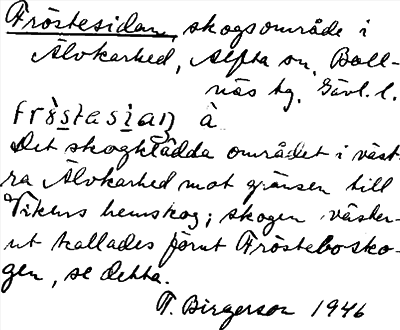 Fröstesidan, skogsområde i
Älvkarhed, Alfta sn, Boll-
näs tg. Gävl. l.
frö̀stasi̱an à
Det skogklädda området i väst-
ra Älvkarhed mot gränsen till
Vikens hemskog; skogen väster-
ut kallades förut Frösteboško-
gen, se detta.
T. Birgerson 1946